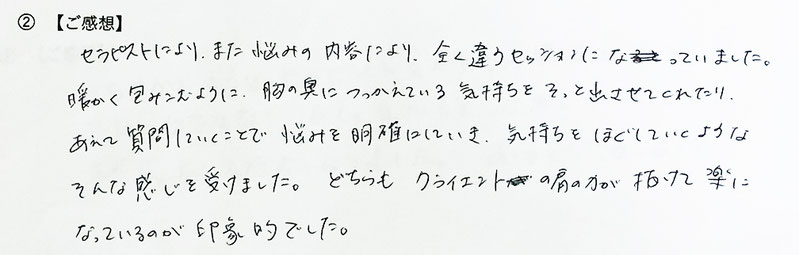 ② 【ご感想】
セラピストにより、また悩みの内容により、全く違うセッションになっていました。
暖かく包みこむように、胸の奥につっかえている気持ちをそっと出させてくれたり、
あえて質問していくことで悩みを明確にしていき、気持ちをほぐしていくような
そんな感じを受けました。どちらもクライエントの肩の力が抜けて楽に
なっているのが印象的でした。